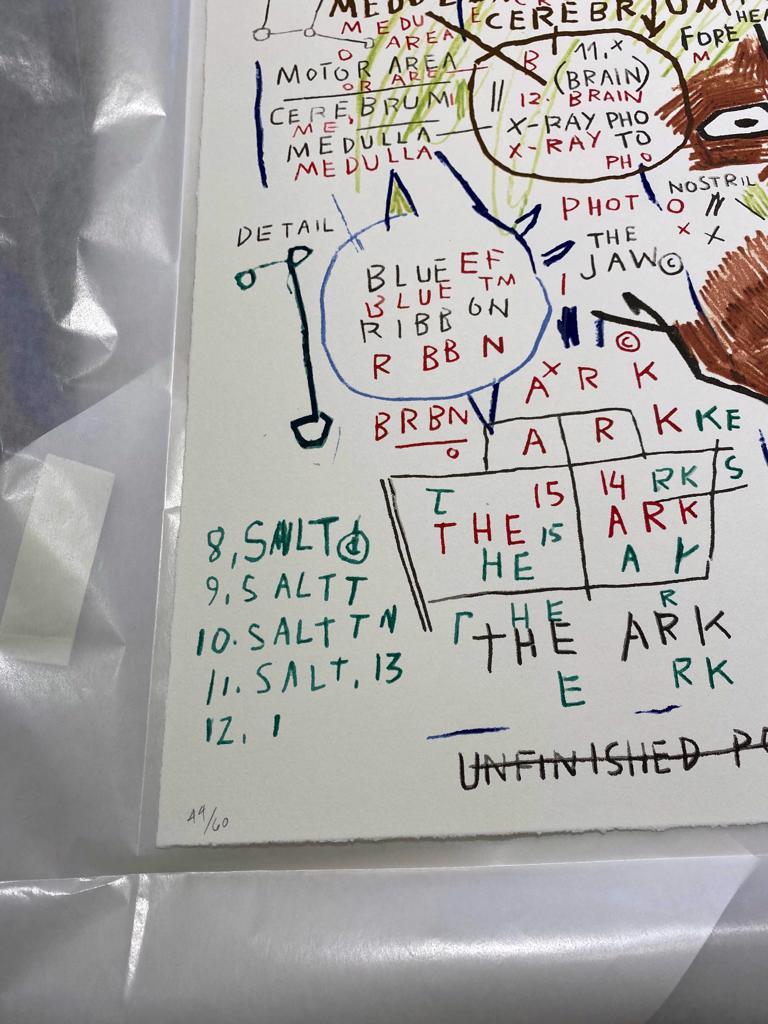 CEREBRUM
MEDU
AREA
FORE
MOTOR AREA
OR ARE
B 11.x
(BRAIN)
CEREBRUM
12. BRAIN
ME
X-RAY PHO
MEDULLA
X-RAY TO
MEDULLA
PHO
NOSTRIL
PHOT O
DETAIL
THE
JAW©
BLUE EF
BLUE TM
RIBBON
R BB N
©
AX R K
BRBN
O
A R K KE
S
T 15 14 RK
THE 15 ARK
HE A
8, SALT
9. SALTT
10. SALTTN
11. SALT, 13
12. 1
T HE R
THE ARK
E RK
UNFINISHED PO
49/60